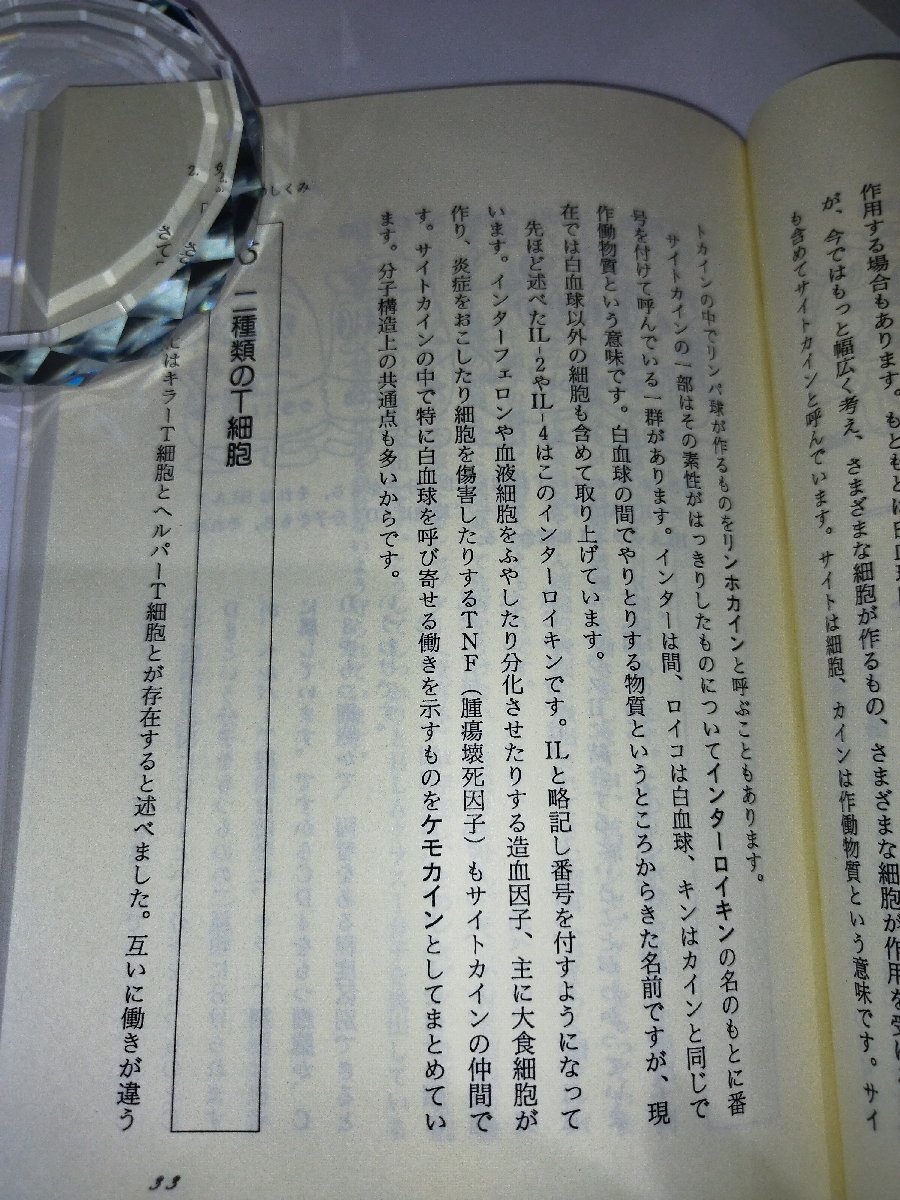 作用する場合もあります。もともとは白血球
が、今ではもっと幅広く考え、さまざまな細胞が作るもの、さまざまな細胞が作用を受け
も含めてサイトカインと呼んでいます。サイトは細胞、カインは作働物質という意味です。サイ
トカインの中でリンパ球が作るものをリンホカインと呼ぶこともあります。
サイトカインの一部はその素性がはっきりしたものについてインターロイキンの名のもとに番
号を付けて呼んでいる一群があります。インターは間、ロイコは白血球、キンはカインと同じで
作働物質という意味です。白血球の間でやりとりする物質というところからきた名前ですが、現
在では白血球以外の細胞も含めて取り上げています。
先ほど述べたIL-2やIL-4はこのインターロイキンです。ILと略記し番号を付すようになって
います。インターフェロンや血液細胞をふやしたり分化させたりする造血因子、主に大食細胞が
作り、炎症をおこしたり細胞を傷害したりするTNF(腫瘍壊死因子)もサイトカインの仲間で
す。サイトカインの中で特に白血球を呼び寄せる働きを示すものをケモカインとしてまとめてい
ます。分子構造上の共通点も多いからです。
二種類のT細胞
はキラーT細胞とヘルパーT細胞とが存在すると述べました。互いに働きが違う
2.
しくみ
33